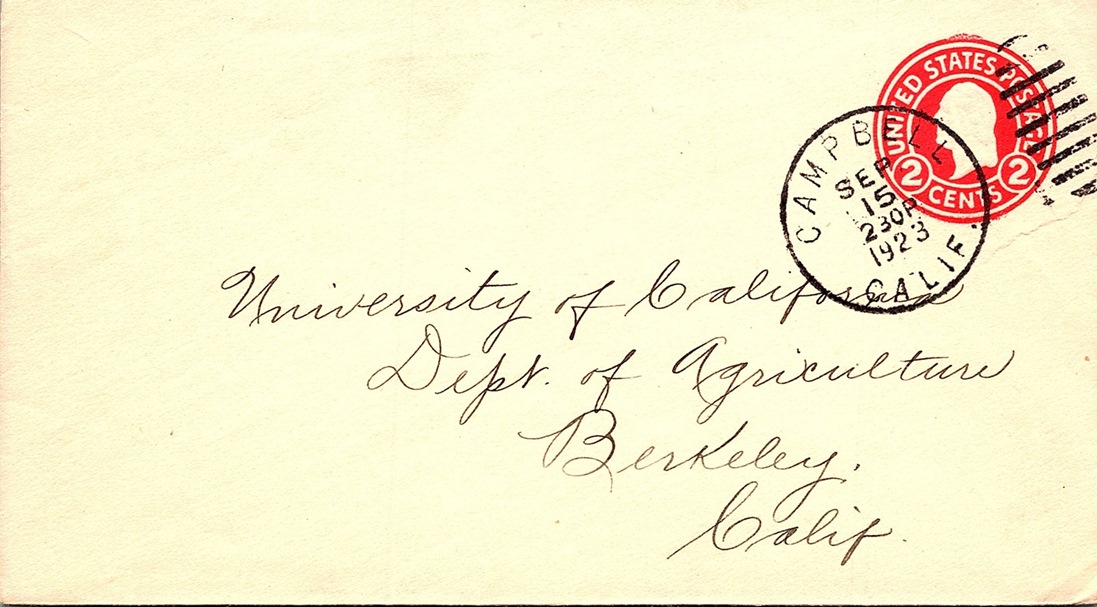 UNITED STATES POSTAGE
2 CENTS 2
CAMPBELL
SEP
15
230P
1923
CALIF.
University of California
Dept. of Agriculture
Berkeley.
Calif.